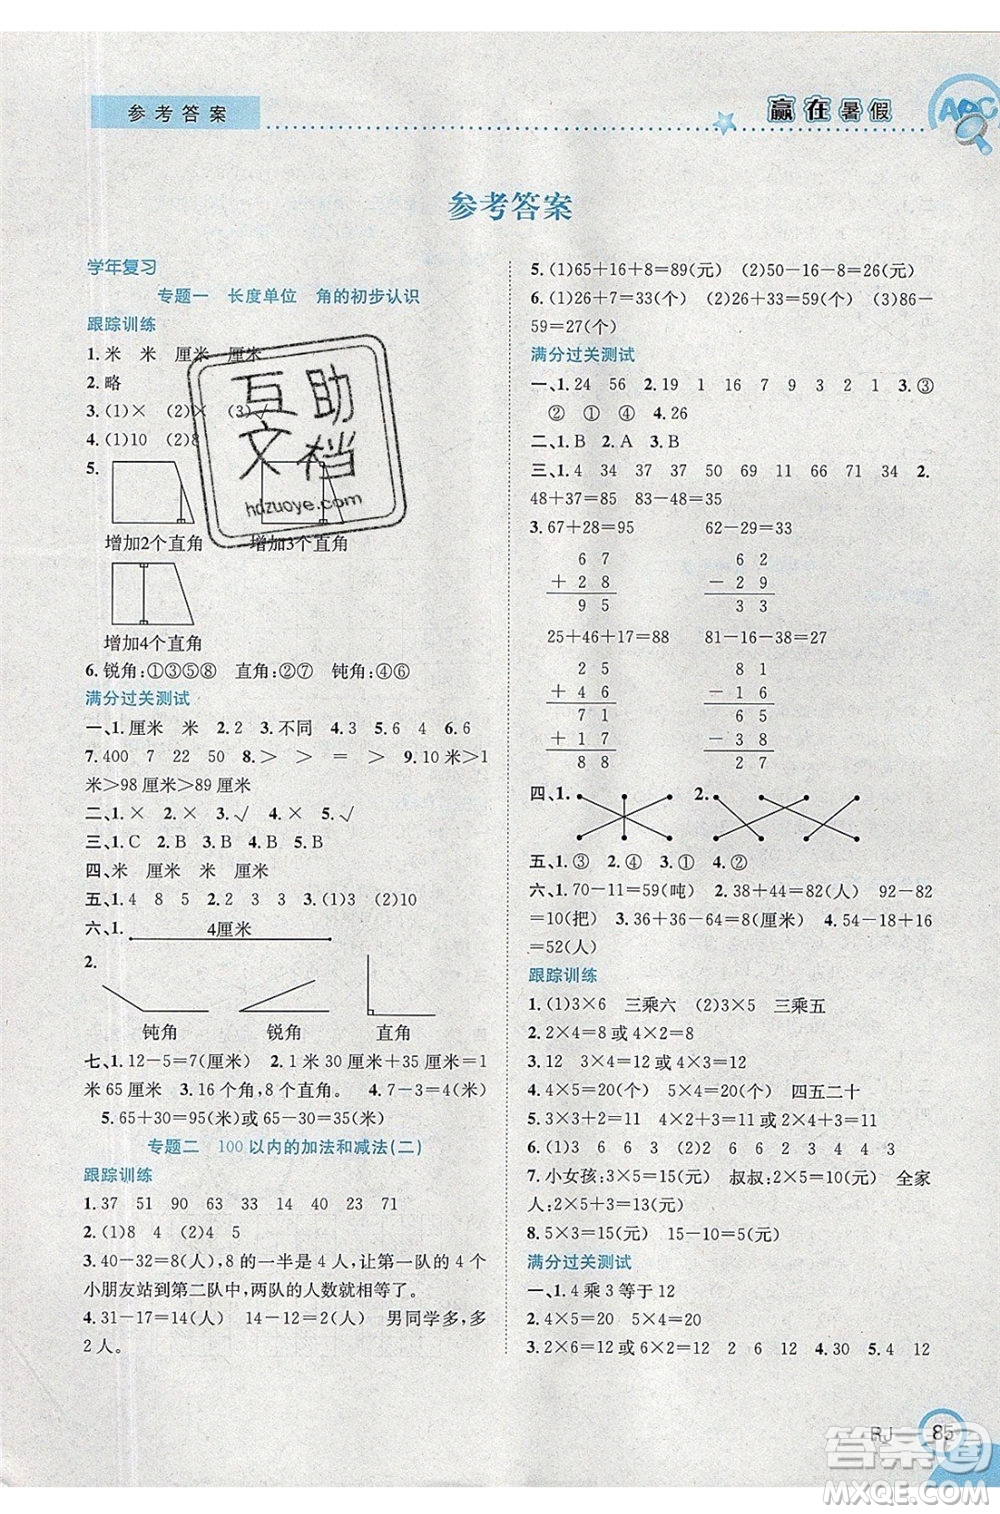 参考答案
赢在暑假
ABC
参考答案
学年复习
专题一 长度单位 角的初步认识
跟踪训练
1.米 米 厘米 厘米
2.略
3.(1)× (2)× (3)√
4.(1)10 (2)4
5.
增加2个直角 增加3个直角
增加4个直角
6.锐角:①③⑤⑧ 直角:②⑦ 钝角:④⑥
满分过关测试
一、1.厘米 米 2.2 3.不同 4.3 5.6 4 6.6
7.400 7 22 50 8.> > = > 9.10厘米>1
米>98厘米>89厘米
二、1.× 2.× 3.√ 4.× 5.√
三、1.C 2.B 3.B 4.B 5.B
四、米 厘米 米 厘米
五、1.4 8 5 2.2 3 3 3.(1)3 (2)10
六、1. 4厘米
2.
钝角 锐角 直角
七、1.12-5=7(厘米) 2.1米30厘米+35厘米=1
米65厘米 3.16个角,8个直角。 4.7-3=4(厘米)
5.65+30=95(厘米)或65-30=35(厘米)
专题二 100以内的加法和减法(二)
跟踪训练
1.37 51 90 63 33 40 23 71
2.(1)4 (2)4 5
3.40-32=8(人),8的一半是4人,让第一队的4个
小朋友站到第二队中,两队的人数就相等了。
4.31-17=14(人) 14-12=2(人) 男同学多,多
2人。
5.(1)65+16+8=89(元) (2)50-16-8=26(元)
6.(1)26+33=59(个) (2)86-33=53(个) (3)86-
59=27(个)
满分过关测试
一、1.24 56 2.19 1 4 7 9 3 2 1 3.③
② ① ④ 4.26
二、1.B 2.A 3.B
三、1.4 34 37 37 50 69 11 66 71 34 2.
48+37=85 58+17=75
3.67+28=95 62-29=33
6 7 6 2
+ 2 8 - 2 9
9 5 3 3
25+46+17=88 81-16-38=27
2 5 8 1
+ 4 6 - 1 6
7 1 6 5
+ 1 7 - 3 8
8 8 2 7
四、1. 2.
五、1.③ 2.④ 3.① 4.②
六、1.70-11=59(吨) 2.38+44=82(人) 92-82
=10(把) 3.64-36=28(厘米)
跟踪训练
1.(1)3×6 三乘六 (2)3×5 三乘五
2.2×4=8或4×2=8
3.12 3×4=12或4×3=12
4.4×5=20(个) 5×4=20(个) 四五二十
5.3×3+2=11 4×3-1=11
6.(1)6 6 6 (2)3 3 4 3
7.小女孩:3×5=15(元) 叔叔:4×2=8(元) 全家
人:2×5+3=13(元)
8.5×3=15(元) 15-10=5(元)
满分过关测试
一、1.4乘3等于12
2.4×5=20 5×4=20
3.2×6=12或6×2=12 12 2 6 12 4.30 5.4 12
互助
文档
hdzuoye.com
RJ 85
答案圈
MXQE.COM